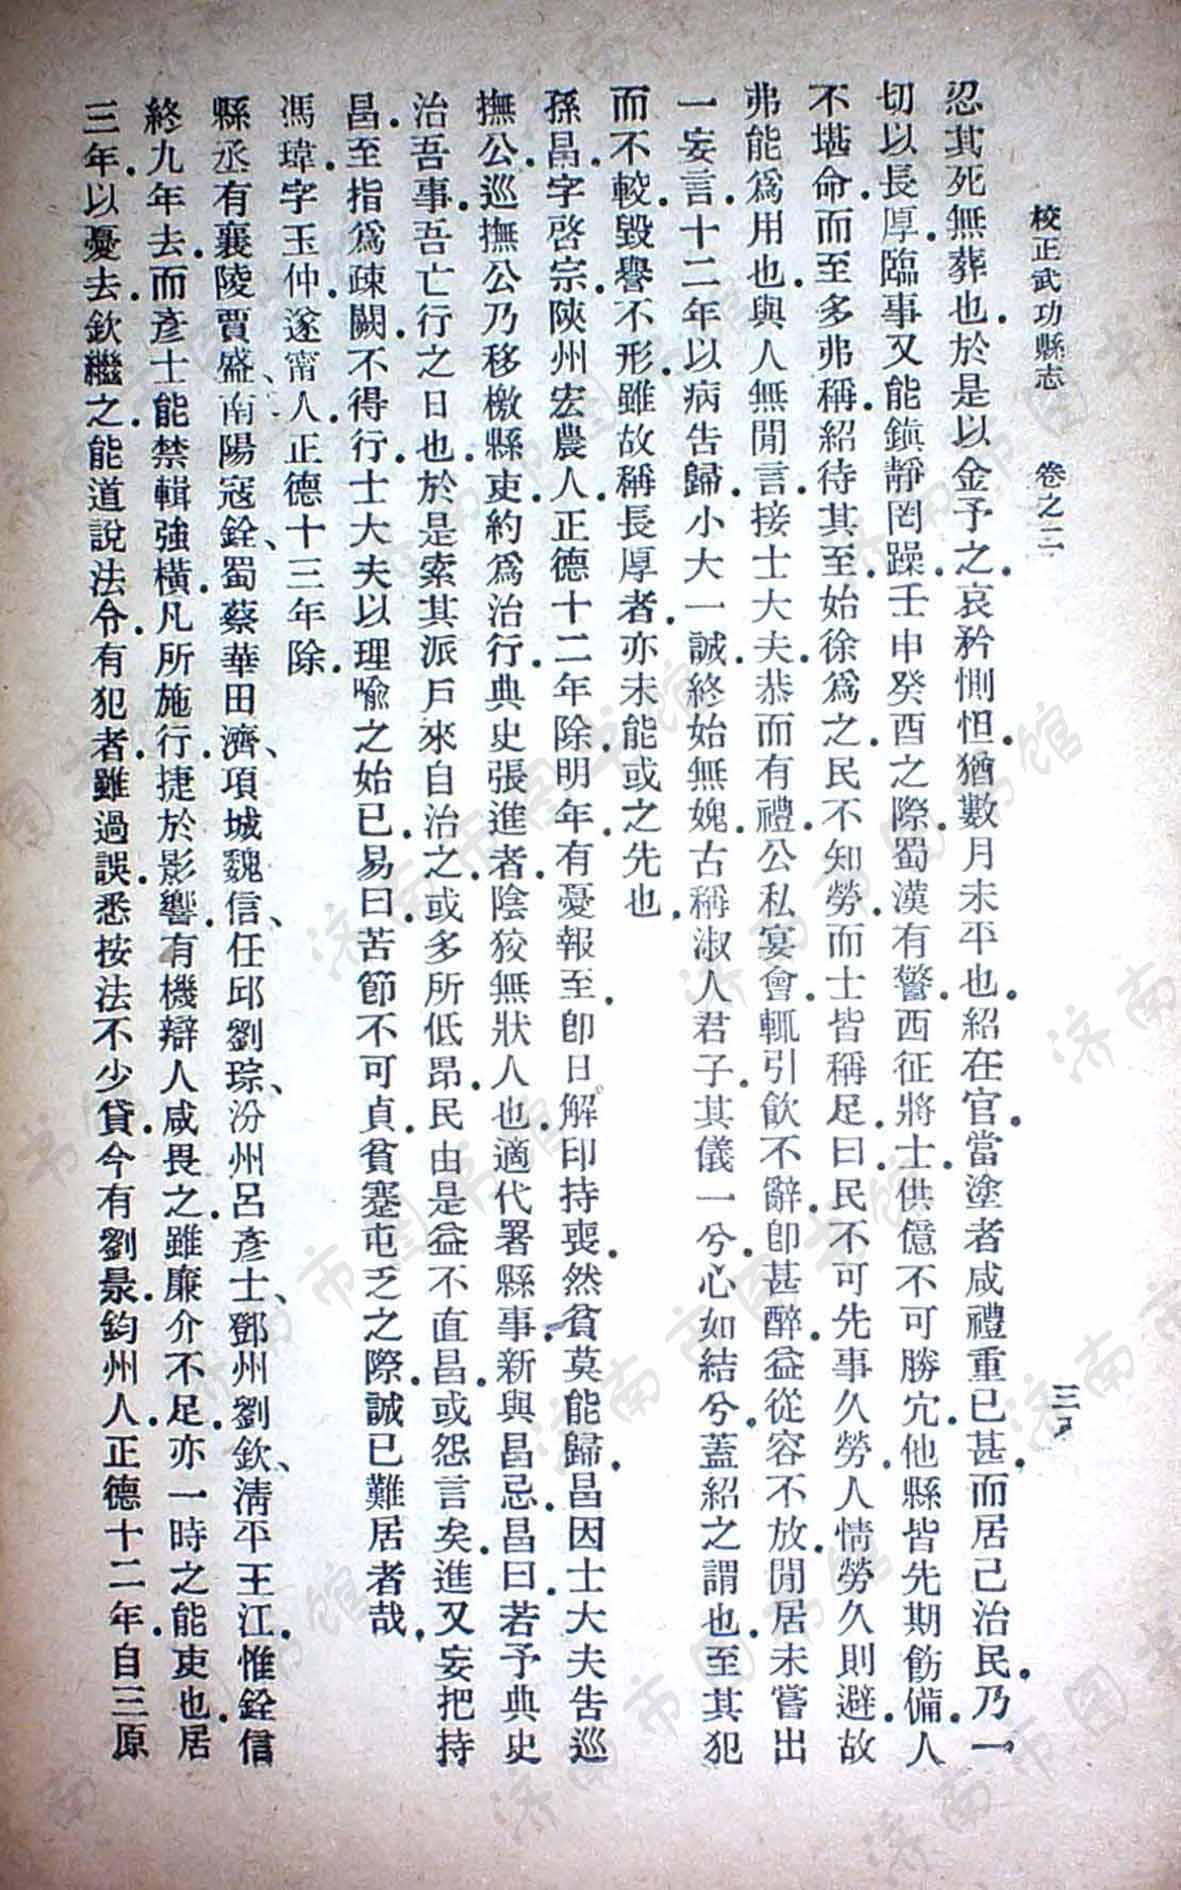 校正武功縣志　卷之二
忍其死無葬也於是以金予之哀矜惻怛猶數月未平也紹在官當塗者咸禮重已甚而居己治民乃一
切以長厚臨事又能鎮靜罔躁壬申癸酉之際蜀漢有警西征將士供億不可勝宂他縣皆先期飭備人
不堪命而至多弗稱紹待其至始徐爲之民不知勞而士皆稱足曰民不可先事久勞人情勞久則避故
弗能爲用也與人無閒言接士大夫恭而有禮公私宴會輒引飮不辭卽甚醉益從容不放閒居未嘗出
一妄言十二年以病告歸小大一誠終始無媿古稱淑人君子其儀一兮心如結兮蓋紹之謂也至其犯
而不較毀譽不形雖故稱長厚者亦未能或之先也
孫昌字啓宗陝州宏農人正德十二年除明年有憂報至卽日解印持喪然貧莫能歸昌因士大夫告巡
撫公巡撫公乃移檄縣吏約爲治行典史張進者陰狡無狀人也適代署縣事新與昌忌昌曰若予典史
治吾事吾亡行之日也於是索其派戶來自治之或多所低昂民由是益不直昌或怨言矣進又妄把持
昌至指爲疎闕不得行士大夫以理喩之始已易曰苦節不可貞貧蹇屯乏之際誠已難居者哉
馮瑋字玉仲遂甯人正德十三年除
縣丞有襄陵賈盛南陽寇銓蜀蔡華田濟項城魏信任邱劉琮汾州呂彥士鄧州劉欽淸平王江惟銓信
終九年去而彥士能禁輯強橫凡所施行捷於影響有機辯人咸畏之雖廉介不足亦一時之能吏也居
三年以憂去欽繼之能道說法令有犯者雖過誤悉按法不少貸今有劉㬎鈞州人正德十二年自三原